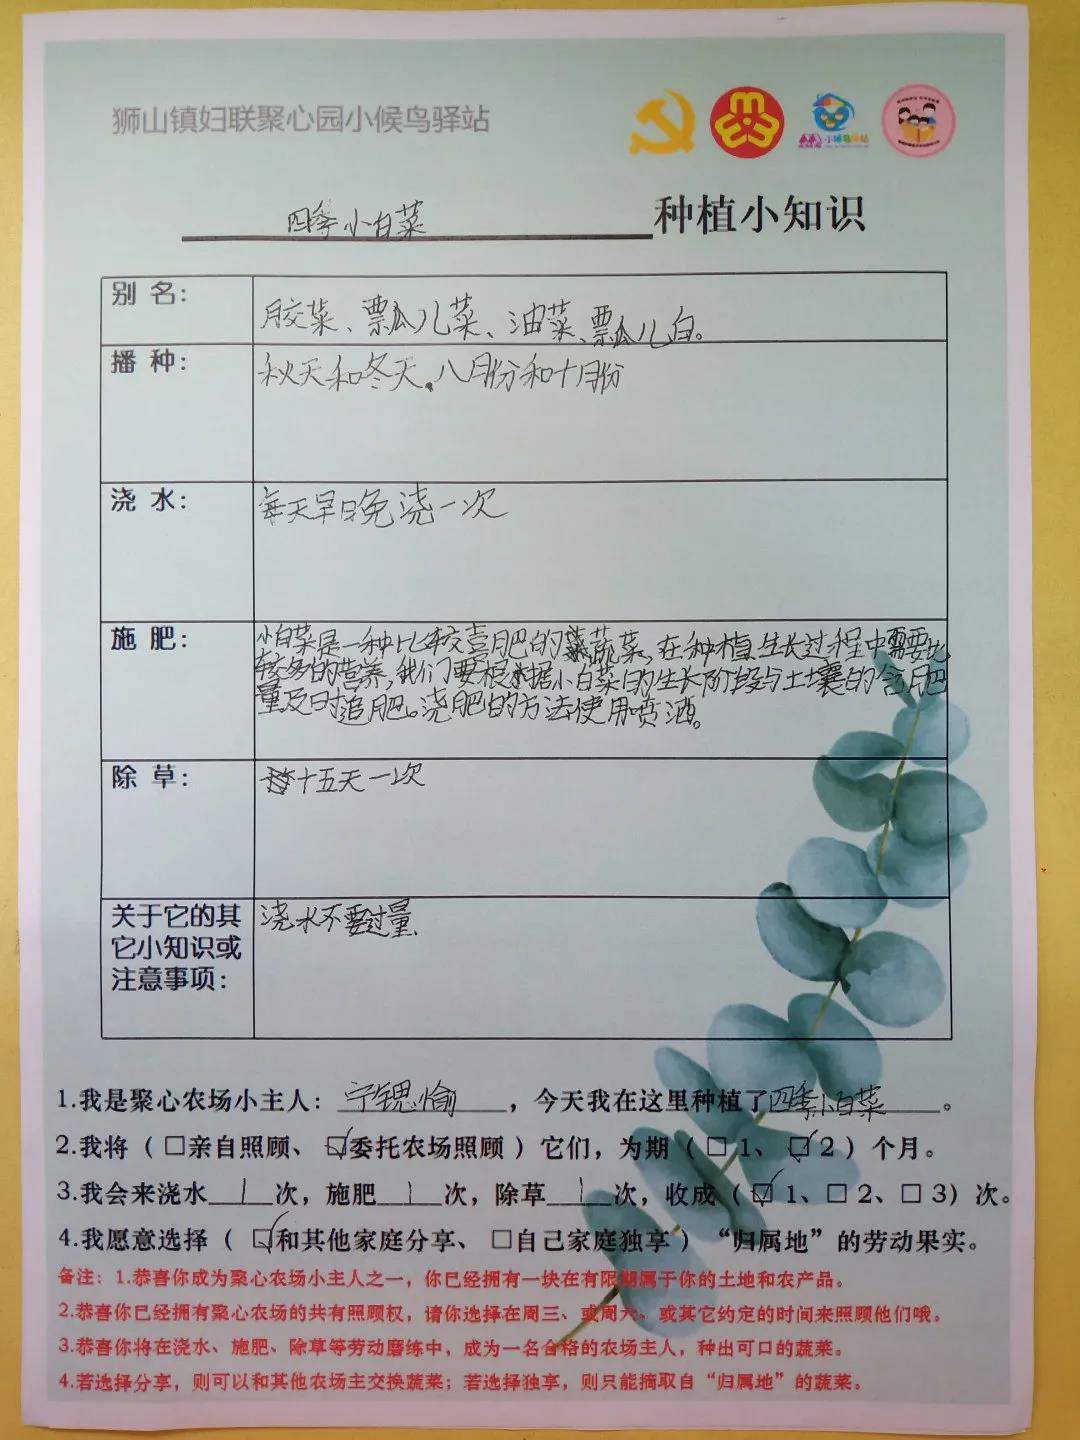 狮山镇妇联聚心园小候鸟驿站
小候鸟驿站
四季小白菜 种植小知识
别 名：
胶菜、瓢儿菜、油菜、瓢儿白。
播 种：
秋天和冬天。八月份和十月份
浇 水：
每天早晚浇一次
施 肥：
小白菜是一种比较喜肥的蔬菜，在种植生长过程中需要比
较多的营养，我们要根据小白菜的生长阶段与土壤的含肥
量及时追肥。浇肥的方法使用喷洒。
除 草：
十五天一次
关于它的其
它小知识或
注意事项：
浇水不要过量.
1.我是聚心农场小主人：宁锶愉，今天我在这里种植了四季小白菜。
2.我将（□亲自照顾、☑委托农场照顾）它们，为期（□ 1、☑ 2）个月。
3.我会来浇水 1 次，施肥 1 次，除草 1 次，收成（☑ 1、□ 2、□ 3）次。
4.我愿意选择（☑和其他家庭分享、□自己家庭独享）“归属地”的劳动果实。
备注：1.恭喜你成为聚心农场小主人之一，你已经拥有一块在有限期属于你的土地和农产品。
2.恭喜你已经拥有聚心农场的共有照顾权，请你选择在周三、或周六、或其它约定的时间来照顾他们哦。
3.恭喜你将在浇水、施肥、除草等劳动磨练中，成为一名合格的农场主人，种出可口的蔬菜。
4.若选择分享，则可以和其他农场主交换蔬菜；若选择独享，则只能摘取自“归属地”的蔬菜。